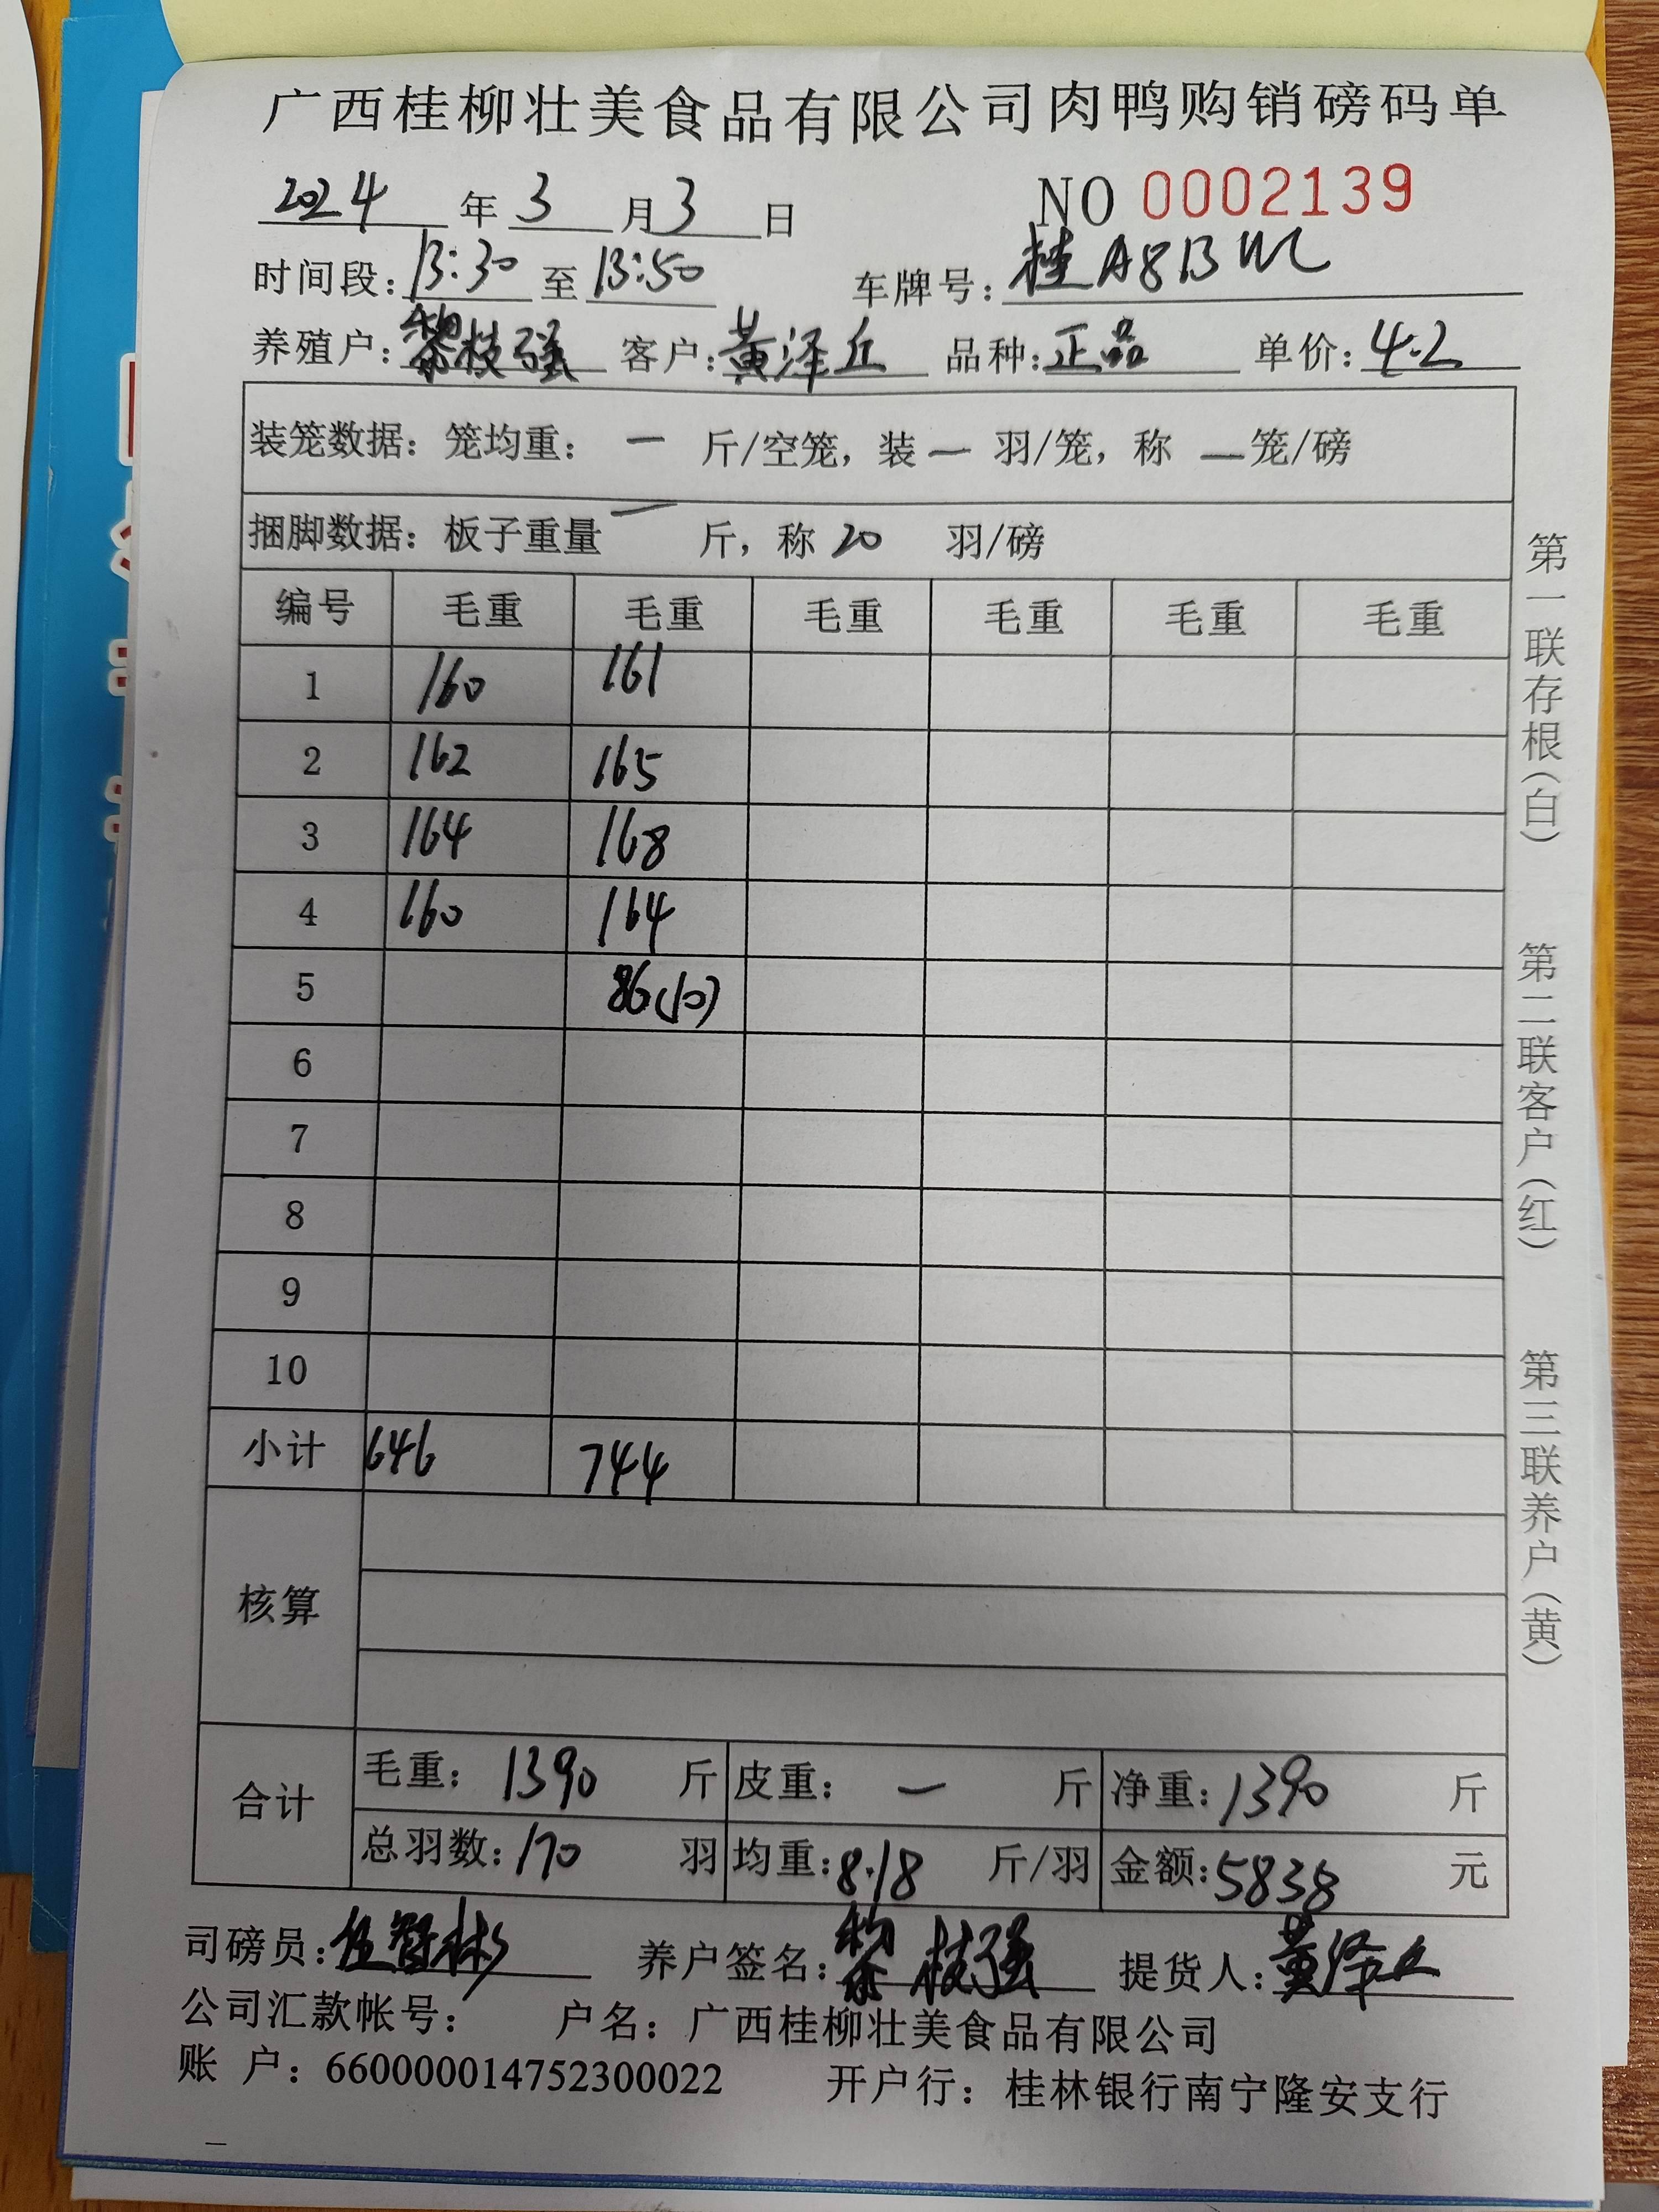 广西桂柳壮美食品有限公司肉鸭购销磅码单
2024 年 3 月 3 日 NO 0002139
时间段: 13:30 至 13:50 车牌号: 桂A8B
养殖户: 黎枝强 客户: 黄泽丘 品种: 正品 单价: 4.2
装笼数据: 笼均重: — 斤/空笼, 装 — 羽/笼, 称 — 笼/磅
捆脚数据: 板子重量 — 斤, 称 20 羽/磅
编号 毛重 毛重 毛重 毛重 毛重 毛重
1 160 161
2 162 165
3 164 168
4 160 164
5 86(10)
6
7
8
9
10
小计 646 744
核算
合计 毛重: 1390 斤 皮重: — 斤 净重: 1390 斤
总羽数: 170 羽 均重: 8.18 斤/羽 金额: 5838 元
司磅员: 养户签名: 黎枝强 提货人: 黄泽丘
公司汇款帐号: 户名: 广西桂柳壮美食品有限公司
账 户: 660000014752300022 开户行: 桂林银行南宁隆安支行
第一联存根(白) 第二联客户(红) 第三联养户(黄)